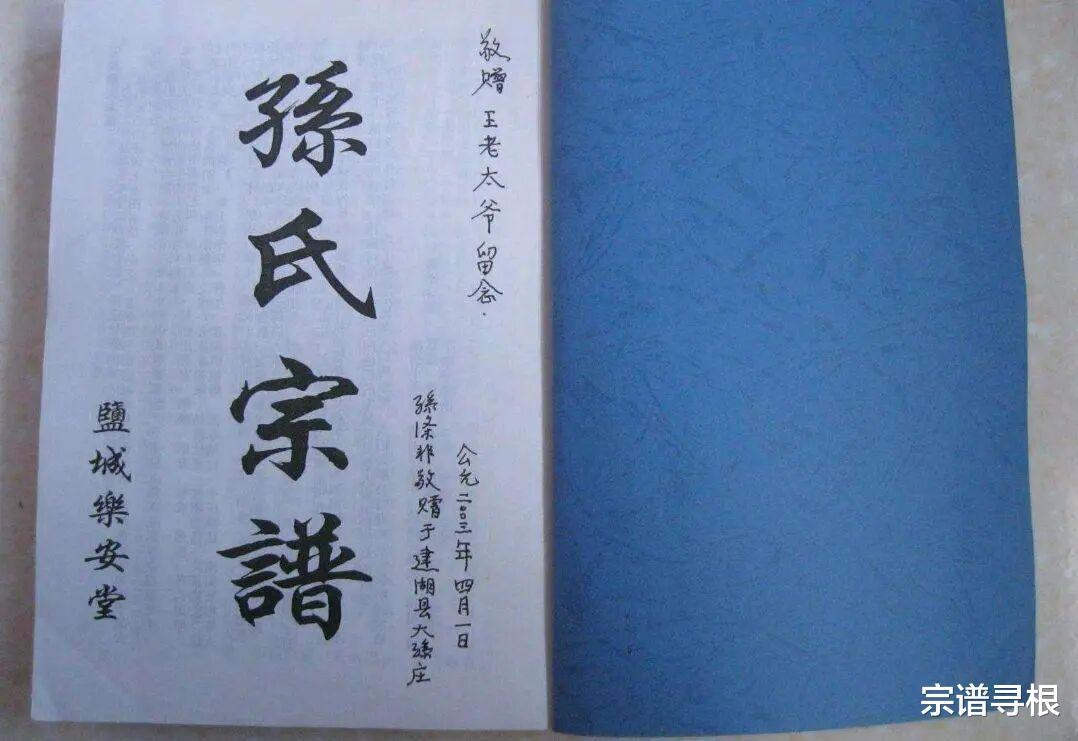 敬赠 王老太爷留念.
公元二〇〇三年四月一日
孫条非敬赠于建湖县大孫庄
孫氏宗譜
鹽城樂安堂
宗谱寻根